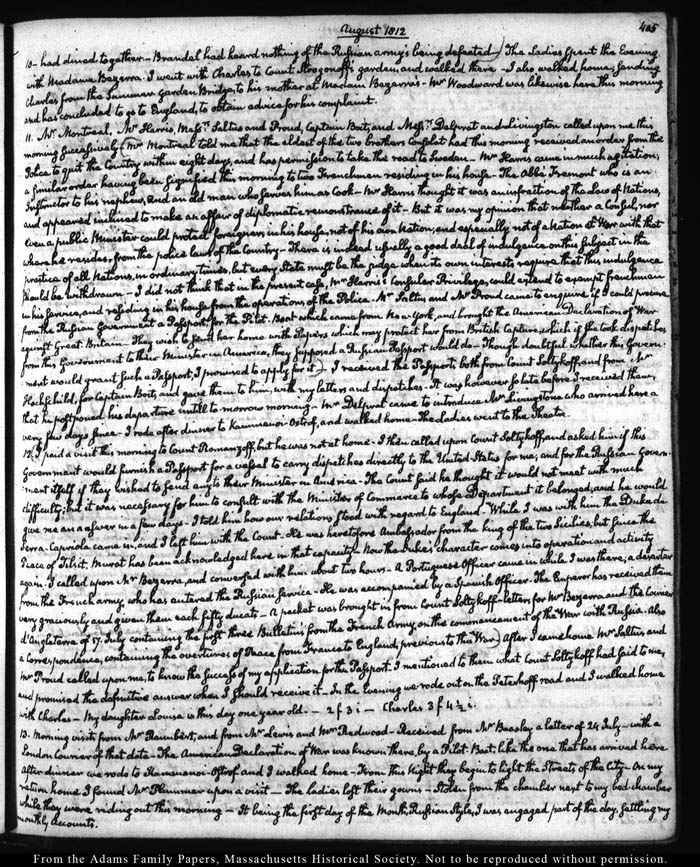 August 1812
405
10. had dined together. Brandel had heard nothing of the Russian army's being defeated) The Ladies spent the Evening
with Madame Bezerra. I went with Charles to Count Strogonoff's garden, and walked there. I also walked home, sending
Charles from the Summer Garden Bridge, to his mother at Madam Bezerra's. Mr Woodward was likewise here this morning
and has concluded to go to England, to obtain advice for his complaint.
11. Mr Montreal, Mr Harris, Messrs Saltus and Proud, Captain Bates, and Messrs Delprat and Livingston called upon me this
morning successively. (Mr Montreal told me that the eldest of the two brothers had this morning received an order from the
Police to quit the Country within eight days, and has permission to take the road to Sweden. Mr Harris came in much agitation;
a similar order having been signified this morning to two Frenchmen residing in his house. The Abbé Fremont who is an
Instructor to his nephew, and an old man who serves him as Cook. Mr Harris thought it was an infraction of the Law of Nations,
and appeared inclined to make an affair of diplomatic remonstrance of it. But it was my opinion that neither a Consul, nor
even a public Minister could protect foreigners in his house, not of his own Nation, and especially not of a Nation at War with that
where he resides, from the police laws of the Country. There is indeed usually a good deal of indulgence on this subject in the
practice of all Nations, in ordinary times, but every State must be the judge when its own interests require that this indulgence
should be withdrawn. I did not think that in the present case, Mr Harris's Consular Privilege, could extend to exempt frenchmen
in his service, and residing in his house from the operations of the Police. Mr Saltus, and Mr Proud came to enquire if I could procure
from the Russian Government a Passport, for the Pilot-Boat which came from New-York, and brought the American Declaration of War
against Great Britain. They wish to send her home with Papers which may protect her from British Capture, which if she took dispatches
from this Government to their Minister in America, they supposed a Russian Passport would do. Though doubtful whether this Govern-
ment would grant such a Passport, I promised to apply for it). I received the Passports both from Count Soltykoff, and from Mr
Hochschild, for Captain Bates, and gave them to him, with my letters and dispatches. It was however so late before I received them,
that he postponed his departure until to-morrow morning. Mr Delprat came to introduce Mr Livingstone who arrived here a
very few days since. I rode after dinner to Kammenoi-Ostrof, and walked home. The Ladies went to the Theatre.
12. I paid a visit this morning to Count Romanzoff, but he was not at home. I then called upon Count Soltykoff, and asked him if this
Government would furnish a Passport for a vessel to carry dispatches directly to the United States for me; and for the Russian Govern-
ment itself if they wished to send any to their Minister in America. The Count said he thought it would not meet with much
difficulty; but it was necessary for him to consult with the Minister of Commerce to whose Department it belonged, and he would
give me an answer in a few days. I told him how our relations stood with regard to England. While I was with him the Duke de
Serra-Capriola came in, and I left him with the Count. He was heretofore Ambassador from the king of the two Sicilies, but since the
Peace of Tilsit, Murat has been acknowledged here in that capacity. Now the Duke's character comes into operation and activity
again. I called upon Mr Bezerra, and conversed with him about two hours. A Portuguese Officer came in while I was there; a deserter
from the French army, who has entered the Russian service. He was accompanied by a Spanish Officer. The Emperor has received them
very graciously and given them each fifty ducats. A packet was brought in from Count Soltykoff letters for Mr Bezerra and the Courier
d'Angleterre of 17. July containing the first three Bulletins from the French Army, on the commencement of the War with Russia. Also
a correspondence, containing the overtures of Peace from France to England, previous to this War) After I came home Mr Saltus and
Mr Proud called upon me, to know the success of my application for the Passport. I mentioned to them what Count Soltykoff had said to me,
and promised the definitive answer when I should receive it. In the Evening we rode out on the Peterhoff road and I walked home
with Charles. My daughter Louisa is this day one year old. — 2 f 3 i — Charles 3 f 4 ½ i.
13. Morning visits from Mr Raimbert, and from Mr Lewis and Mr Redwood. Received from Mr Beasley a letter of 24 July — with a
London Courier of that date. The American Declaration of War was known there, by a Pilot-Boat, like the one that has arrived here
After dinner we rode to Kamenoi-Ostrof and I walked home. From this Night they begin to light the Streets of the City. On my
return home I found Mr Plummer upon a visit. The Ladies left their gowns. Stolen from the chamber next to my bed-chamber
while they were riding out this morning. It being the first day of the Month, Russian Style, I was engaged part of the day, settling my
monthly Accounts.
From the Adams Family Papers, Massachusetts Historical Society. Not to be reproduced without permission.